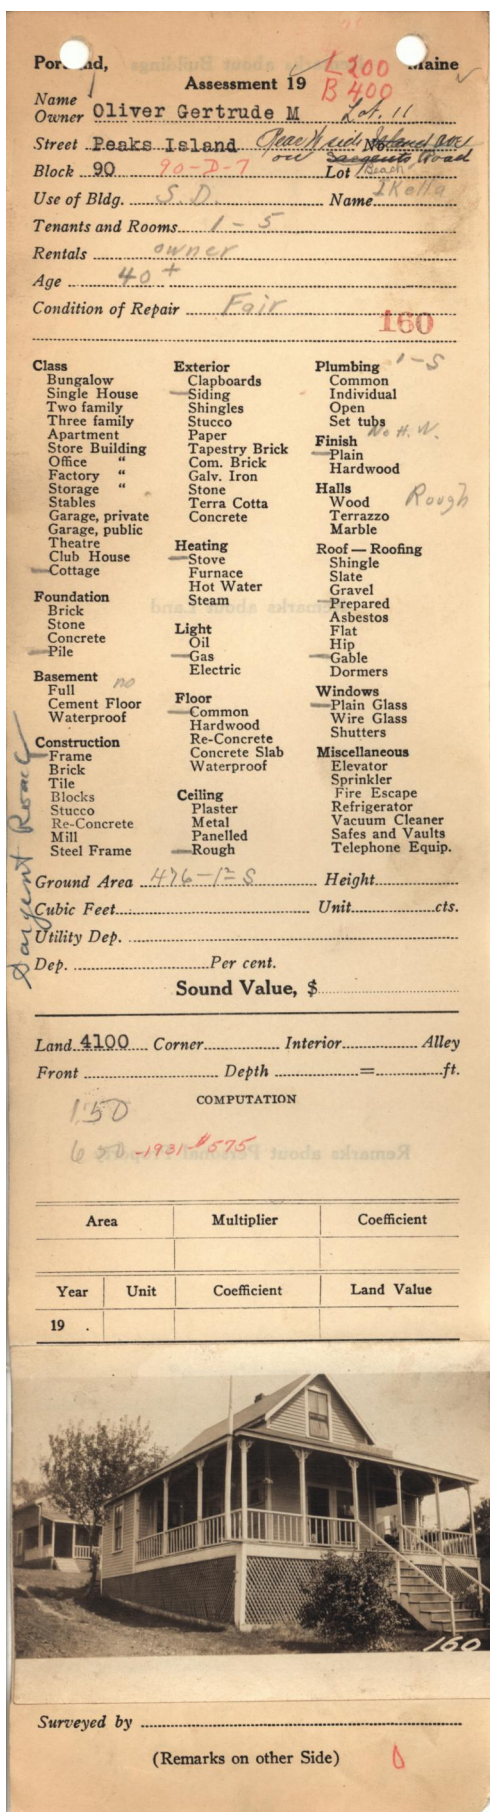 Portland, Maine
L 200
Assessment 19
B 400
Name
Owner Oliver Gertrude M Lot. 11
Street Peaks Island No. Island Ave
on Sargents Road
Block 90 90-D-7 Lot Beach
Use of Bldg. S.D. Name
Tenants and Rooms 1-5
Rentals owner
Age 40+
Condition of Repair Fair
160
Class
Bungalow
Single House
Two family
Three family
Apartment
Store Building
Office "
Factory "
Storage "
Stables
Garage, private
Garage, public
Theatre
Club House
Cottage
Foundation
Brick
Stone
Concrete
Pile
Basement no
Full
Cement Floor
Waterproof
Construction
Frame
Brick
Tile
Blocks
Stucco
Re-Concrete
Mill
Steel Frame
Exterior
Clapboards
Siding
Shingles
Stucco
Paper
Tapestry Brick
Com. Brick
Galv. Iron
Stone
Terra Cotta
Concrete
Heating
Stove
Furnace
Hot Water
Steam
Light
Oil
Gas
Electric
Floor
Common
Hardwood
Re-Concrete
Concrete Slab
Waterproof
Ceiling
Plaster
Metal
Panelled
Rough
Plumbing 1-S
Common
Individual
Open
Set tubs
No H. W.
Finish
Plain
Hardwood
Halls
Wood Rough
Terrazzo
Marble
Roof — Roofing
Shingle
Slate
Gravel
Prepared
Asbestos
Flat
Hip
Gable
Dormers
Windows
Plain Glass
Wire Glass
Shutters
Miscellaneous
Elevator
Sprinkler
Fire Escape
Refrigerator
Vacuum Cleaner
Safes and Vaults
Telephone Equip.
Sargent Road
Ground Area 476-1= S Height
Cubic Feet Unit cts.
Utility Dep.
Dep. Per cent.
Sound Value, $
Land 4100 Corner Interior Alley
Front Depth = ft.
COMPUTATION
150
650 -1931-$575
Area Multiplier Coefficient
Year Unit Coefficient Land Value
19 .
160
Surveyed by
(Remarks on other Side)